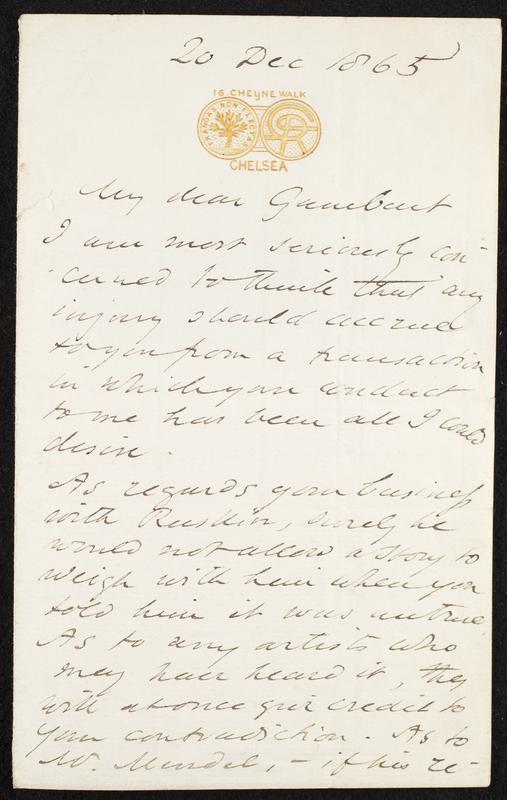 20 Dec 1865
16. CHEYNE WALK
FRANGAS NON FLECTAS
CHELSEA
My dear Gambart
I am most seriously con-
-cerned to think that any
injury should accrue
to you from a transaction
in which your conduct
to me has been all I could
desire.
As regards your business
with Ruskin, surely he
would not allow a story to
weigh with him when you
told him it was untrue.
As to any artists who
may have heard it, they
will at once give credit to
your contradiction. As to
Mr. Mendel, – if his re-